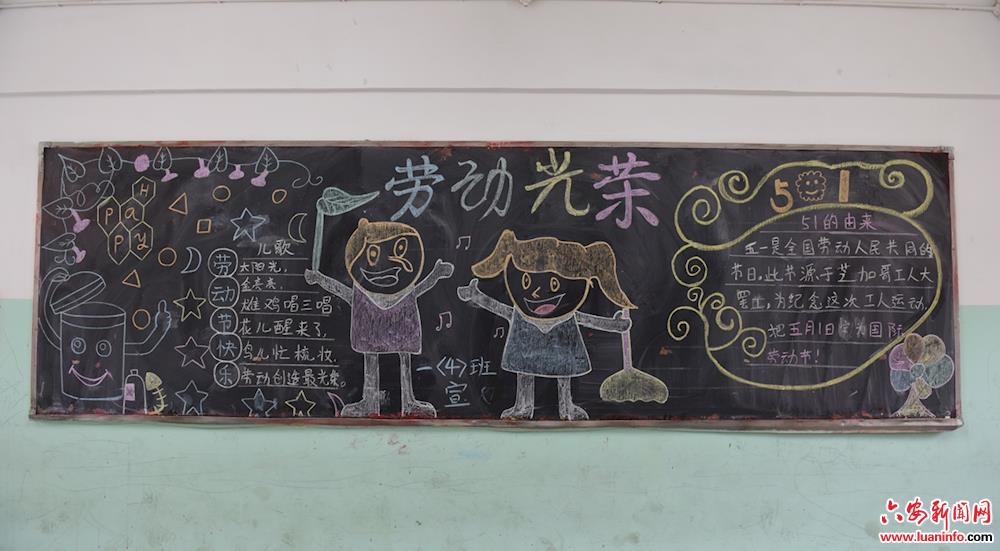 劳动光荣
HAPPY
儿歌
劳动节快乐
太阳光,
金亮亮,
雄鸡唱三唱
花儿醒来了,
鸟儿忙梳妆.
劳动创造最光荣。
一〈4〉班
宣
5 1
51的由来
五一是全国劳动人民共同的
节日,此节源于芝加哥工人大
罢世,为纪念这次工人运动,
把五月1日定为国际
劳动书!
六安新闻网
www.luaninfo.com